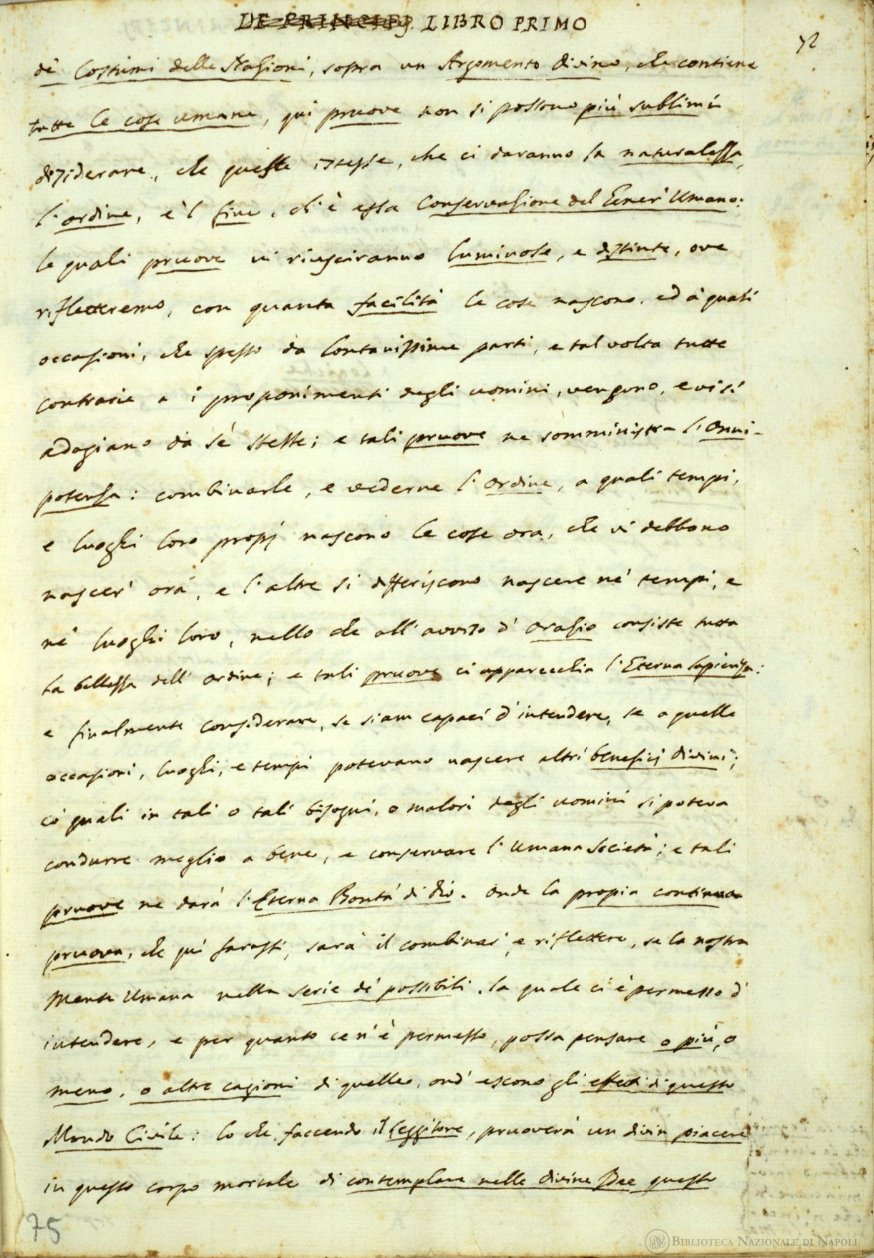 DE PRINCIPJ. LIBRO PRIMO
72
de' Costumi delle Nazioni, sopra un Argomento Divino, che contiene
tutte le cose umane, qui pruove non si possono più sublimi
disiderare, che queste istesse, che ci daranno la naturalezza,
l'ordine, e 'l fine, ch'è essa Conservazione del Gener' Umano:
le quali pruove vi riusciranno luminose, e distinte, ove
rifletteremo, con quanta facilità le cose nascono, ed a quali
occasioni, che spesso da lontanissime parti, e tal volta tutte
contrarie a i proponimenti degli uomini, vengono, e vi si
adagiano da sè stesse; e tali pruove ne somministra l'Onni-
potenza: combinarle, e vederne l'Ordine, a quali tempi,
e luoghi loro propj nascono le cose ora, che vi debbono
nascer' ora, e l'altre si differiscono nascere ne' tempi, e
ne' luoghi loro, nello che all'avviso d'Orazio consiste tutta
la bellezza dell'ordine; e tali pruove ci apparecchia l'Eterna Sapienza:
e finalmente considerare, se siam capaci d'intendere, se a quelle
occasioni, luoghi, e tempi potevano nascere altri benefizj divini;
co' quali in tali o tali bisogni, o malori degli uomini si poteva
condurre meglio a bene, e conservare l'Umana Società; e tali
pruove ne darà l'Eterna Bontà di Dio. Onde la propia continua
pruova, che quì farassi, sarà il combinar', e riflettere, se la nostra
Mente Umana nella serie de' possibili, la quale ci è permesso d'
intendere, e per quanto ce n'è permesso, possa pensare o più, o
meno, o altre cagioni di quelle, ond' escono gli effetti di questo
Mondo Civile: lo che faccendo il Leggitore, pruoverà un divin piacere
in questo corpo mortale di contemplare nelle divine Idee questo
75
BIBLIOTECA NAZIONALE DI NAPOLI